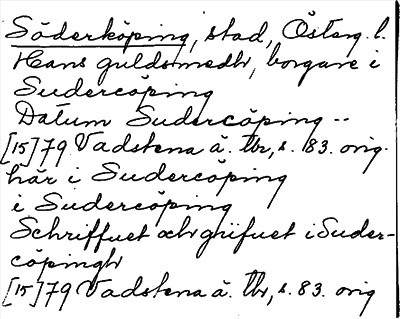 Söderköping, stad, Österg. l.
Hans guldsmedh, borgare i
Sudercöping
Datum Sudercöping --
[15]79 Vadstena ä. Tbr, s. 83. orig.
här i Sudercöping
i Sudercöping
Schriffuet och grifuet i Suder-
cöpingh
[15]79 Vadstena ä. Tbr, s. 83. orig